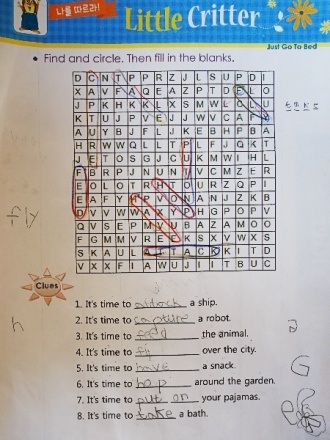 나를 따르라!
Little Critter
Just Go To Bed
• Find and circle. Then fill in the blanks.
D C N T P P R Z J L S U P D I
X A V F A Q E A Z P T D E L O
J P K H K K L X S M W L O L U
K T U J P V E J J W V C A F
A U Y B J F L J K E B H P B A
H R W W Q L L T P L F J Q K T
J E T O S G J C U K M W I H L
F B D J P N J N T V C M Z E R
E O L O T R H O U R Z Q P I
E A F Y H P V O N A N J Z K B
D V V W W A X Y P H G P O P V
Q V S E P M V U B A Z A M O O
F G M M V R E P K S X V W X S
S K A U L A T T A C K K I T D
V X X F I A W U J I I T B U C
fly
Clues
1. It's time to attack a ship.
2. It's time to capture a robot.
3. It's time to feed the animal.
4. It's time to fly over the city.
5. It's time to have a snack.
6. It's time to hop around the garden.
7. It's time to put on your pajamas.
8. It's time to take a bath.
h
a
G